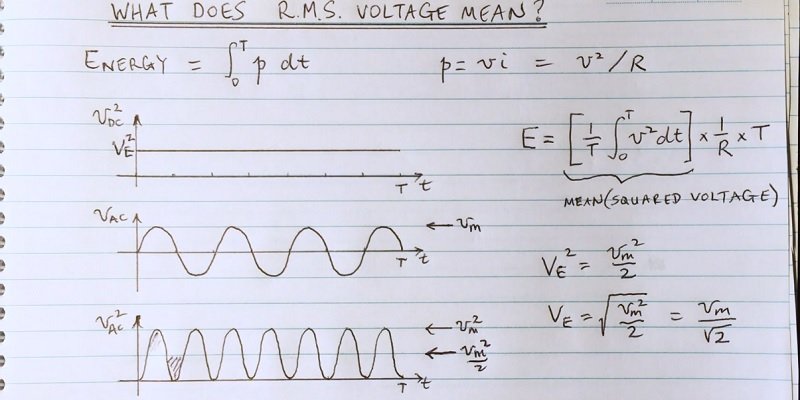 WHAT DOES R.M.S. VOLTAGE MEAN?
ENERGY = ∫₀ᵀ p dt
p = vi = v²/R
v_DC²
V_E²
T t
E = [1/T ∫₀ᵀ v² dt] × 1/R × T
MEAN(SQUARED VOLTAGE)
v_AC
← v_m
T t
V_E² = v_m²/2
V_E = √(v_m²/2) = v_m/√2
v_AC²
← v_m²
← v_m²/2
T t